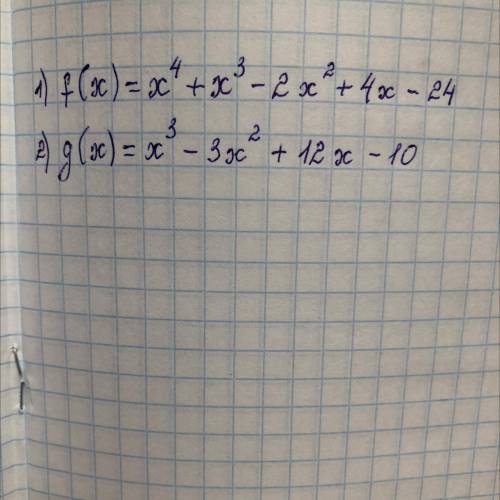 1) f(x) = x⁴ + x³ - 2x² + 4x - 24
2) g(x) = x³ - 3x² + 12x - 10